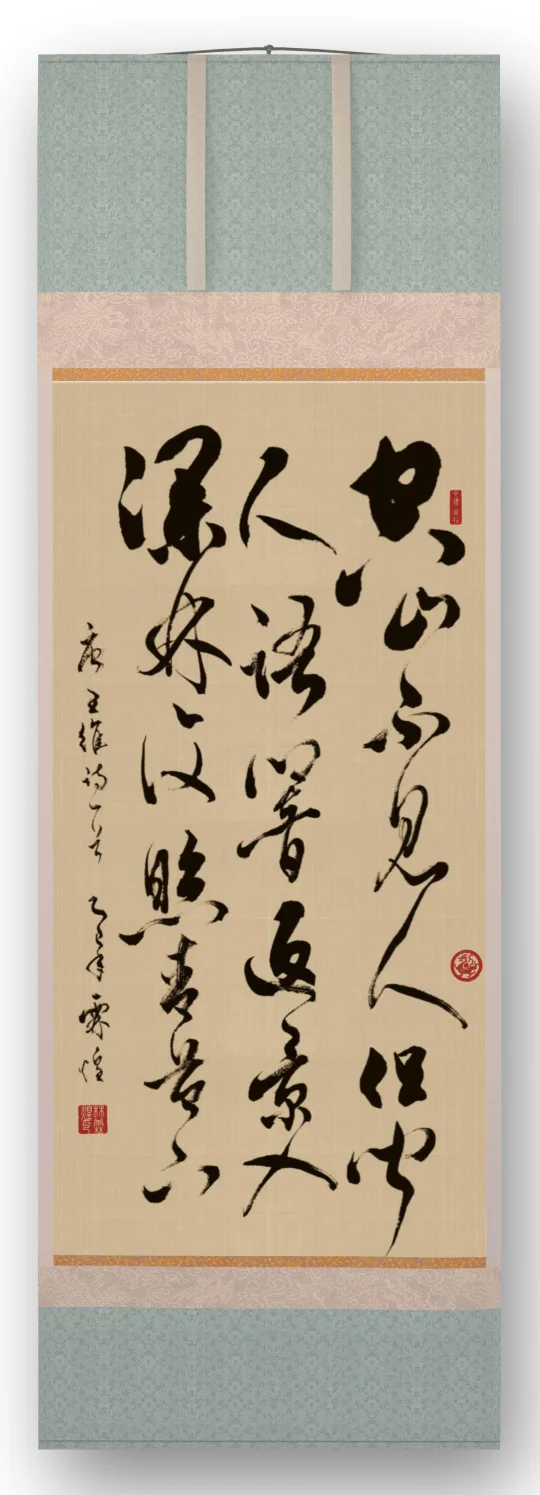 空山不見人但聞
人語響返景入
深林復照青苔上
唐王維詩一首 乙年 霖煌